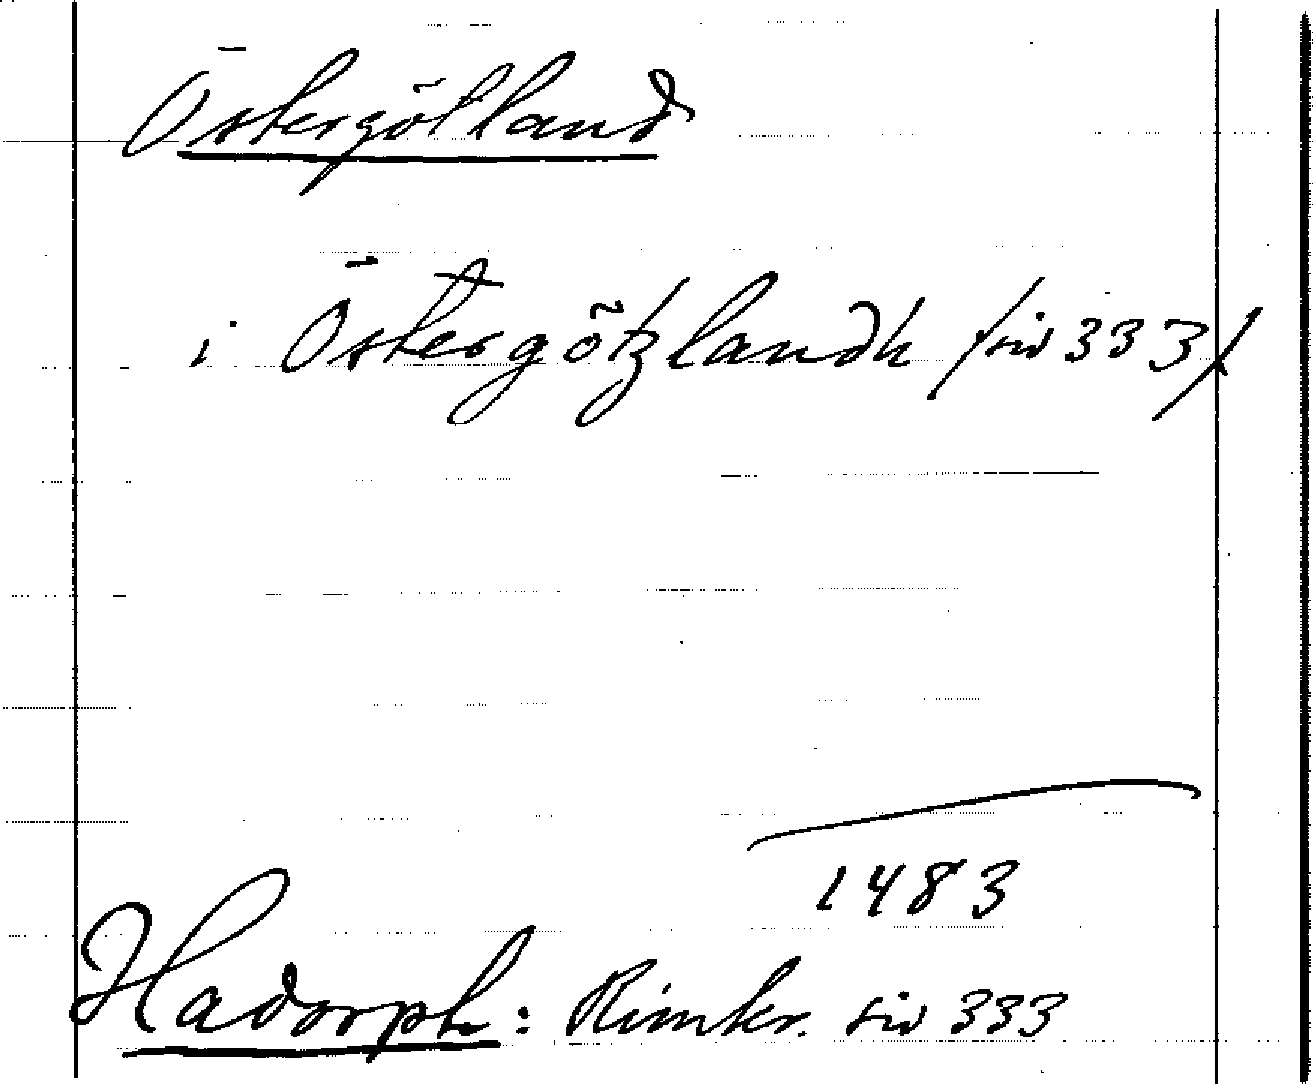 Östergötland
i Östergötzlandh /sid 333/
1483
Hadorph: Rimkr. sid 333